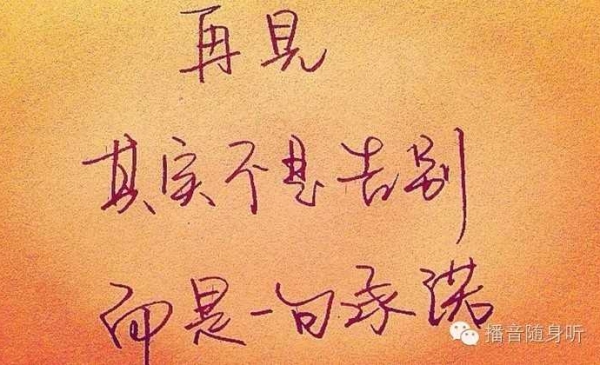 再见
其实不是告别
而是一句承诺
播音随身听